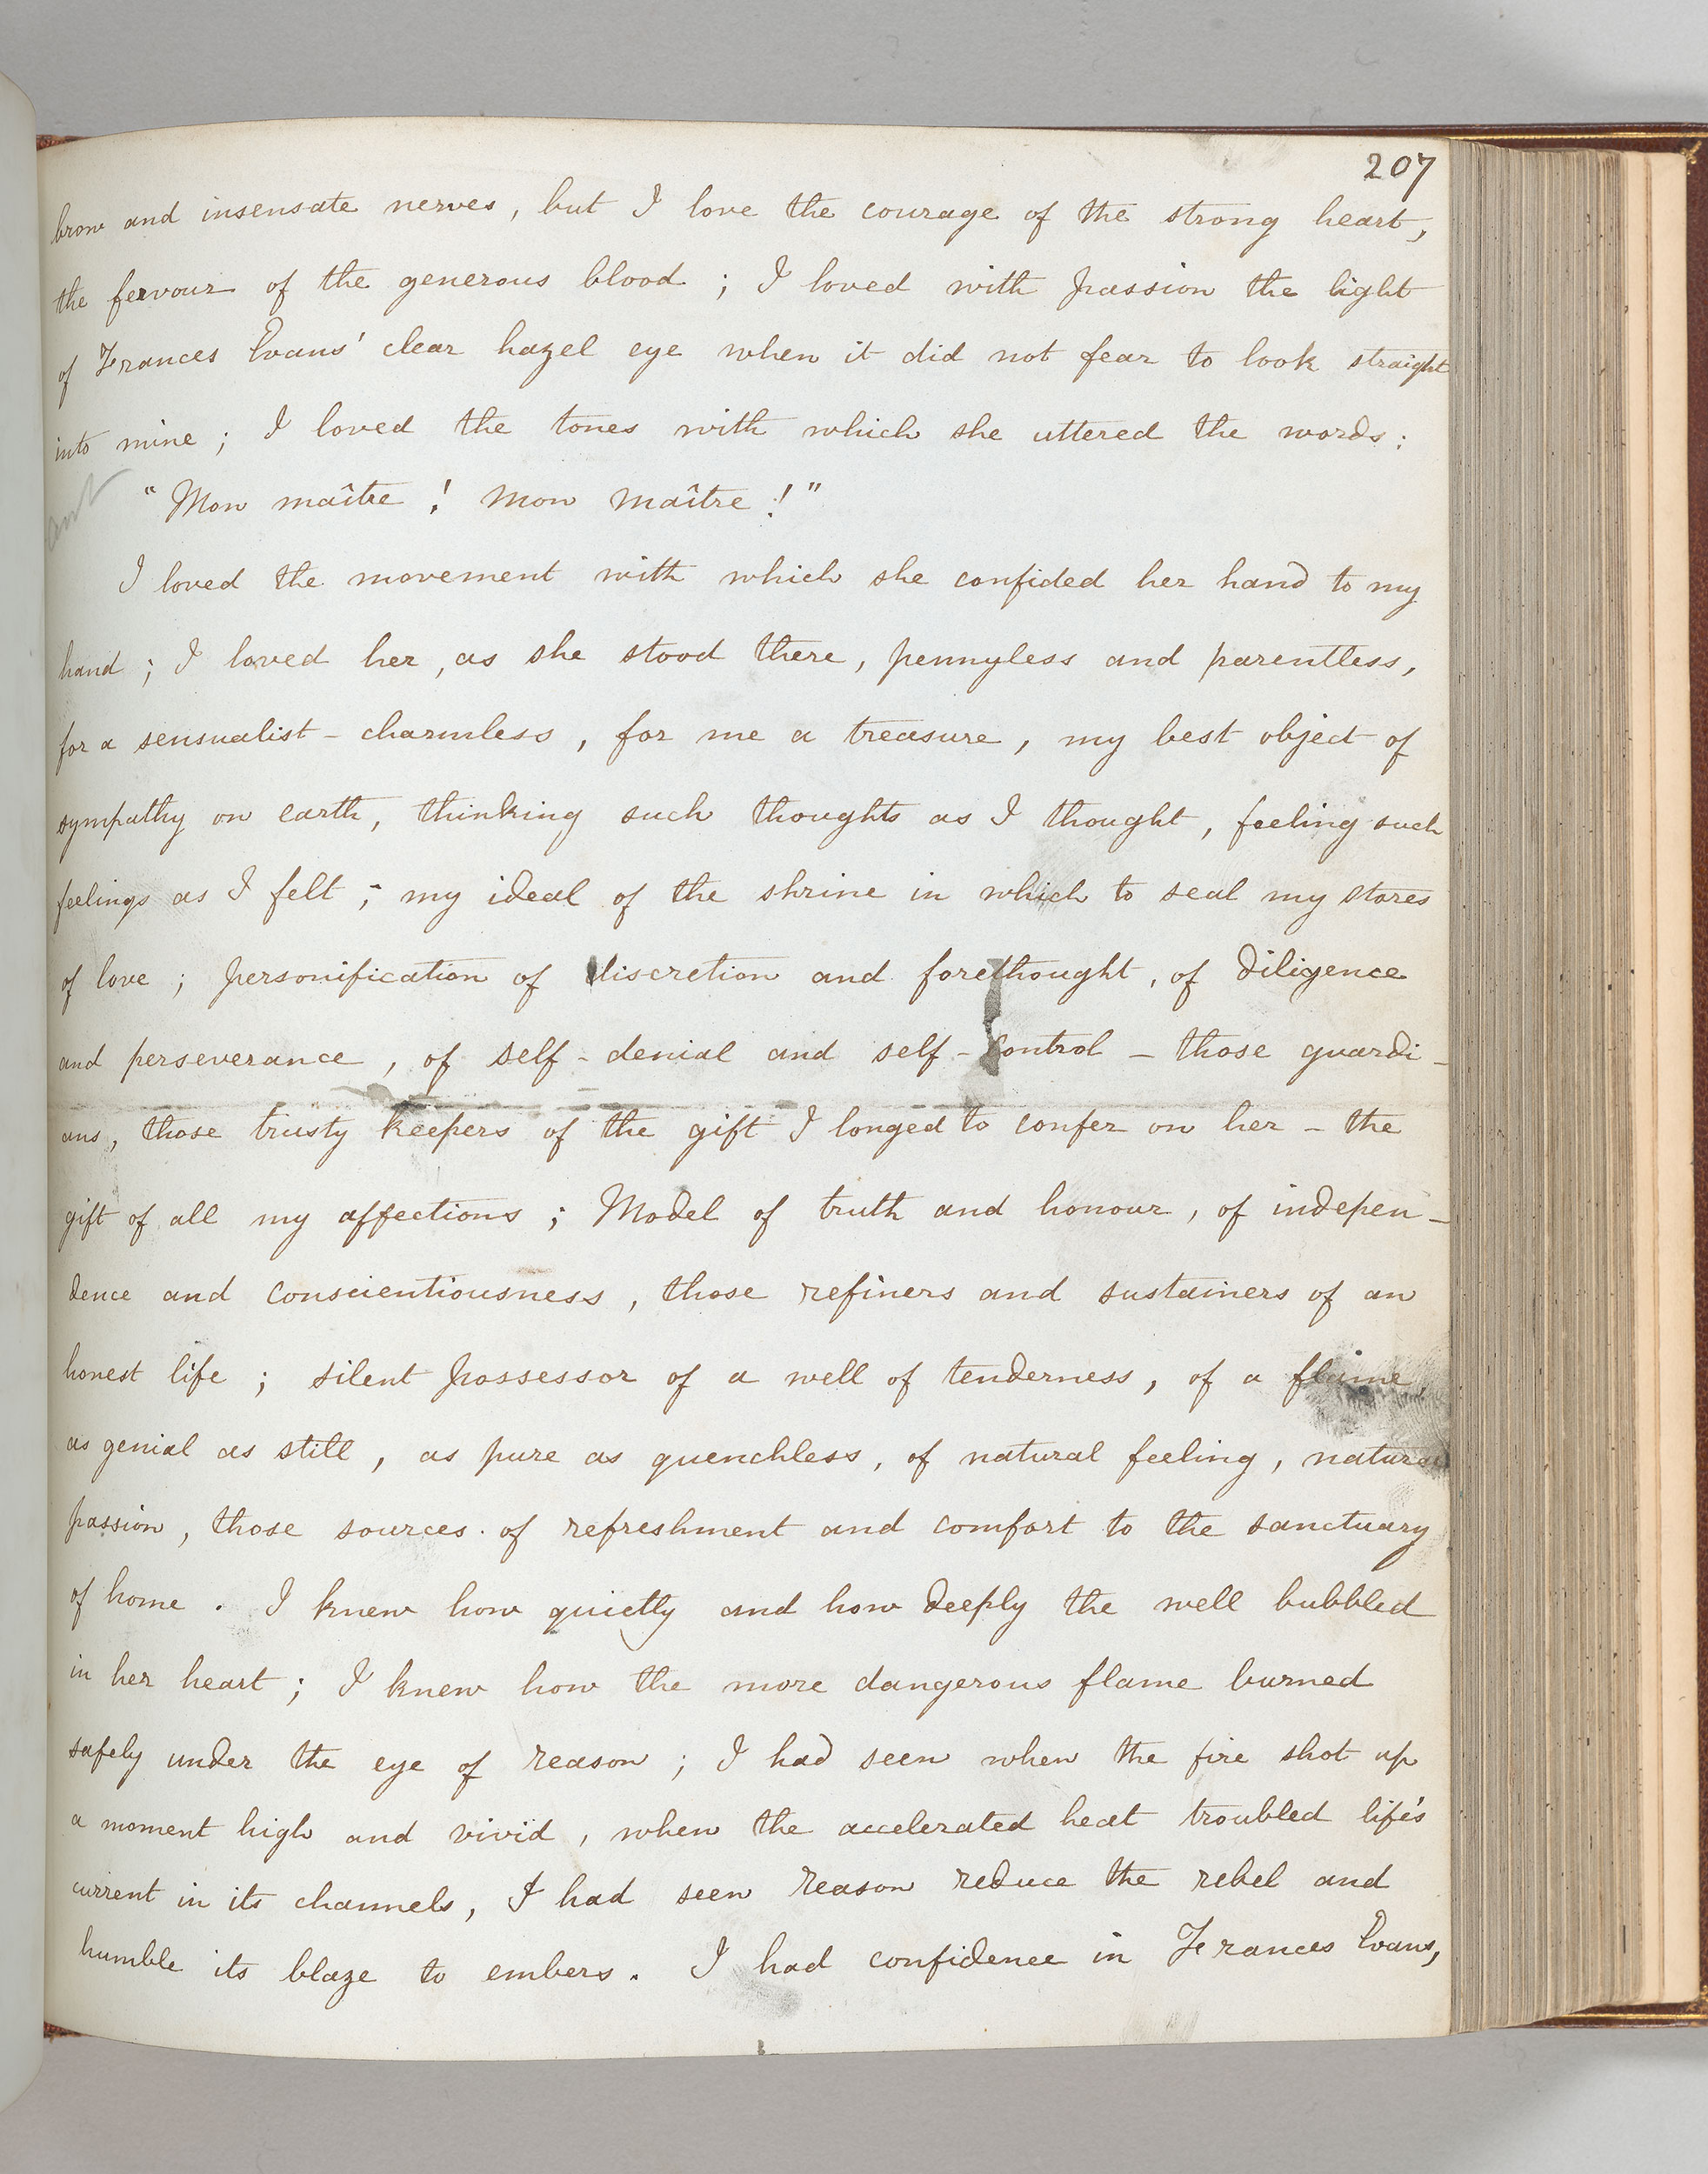 207
brow and insensate nerves, but I love the courage of the strong heart,
the fervour of the generous blood ; I loved with passion the light
of Frances Evans' clear hazel eye when it did not fear to look straight
into mine ; I loved the tones with which she uttered the words :
"Mon maître ! Mon maître !"
I loved the movement with which she confided her hand to my
hand ; I loved her, as she stood there, pennyless and parentless,
for a sensualist - charmless, for me a treasure, my best object of
sympathy on earth, thinking such thoughts as I thought, feeling such
feelings as I felt ; my ideal of the shrine in which to seal my stores
of love ; personification of discretion and forethought, of diligence
and perseverance, of self-denial and self-control - those guardi-
ans, those trusty keepers of the gift I longed to confer on her - the
gift of all my affections ; Model of truth and honour, of indepen-
dence and conscientiousness, those refiners and sustainers of an
honest life ; silent possessor of a well of tenderness, of a flame,
as genial as still, as pure as quenchless, of natural feeling, natural
passion, those sources of refreshment and comfort to the sanctuary
of home. I knew how quietly and how deeply the well bubbled
in her heart ; I knew how the more dangerous flame burned
safely under the eye of reason ; I had seen when the fire shot up
a moment high and vivid, when the accelerated heat troubled life's
current in its channels, I had seen Reason reduce the rebel and
humble its blaze to embers. I had confidence in Frances Evans,